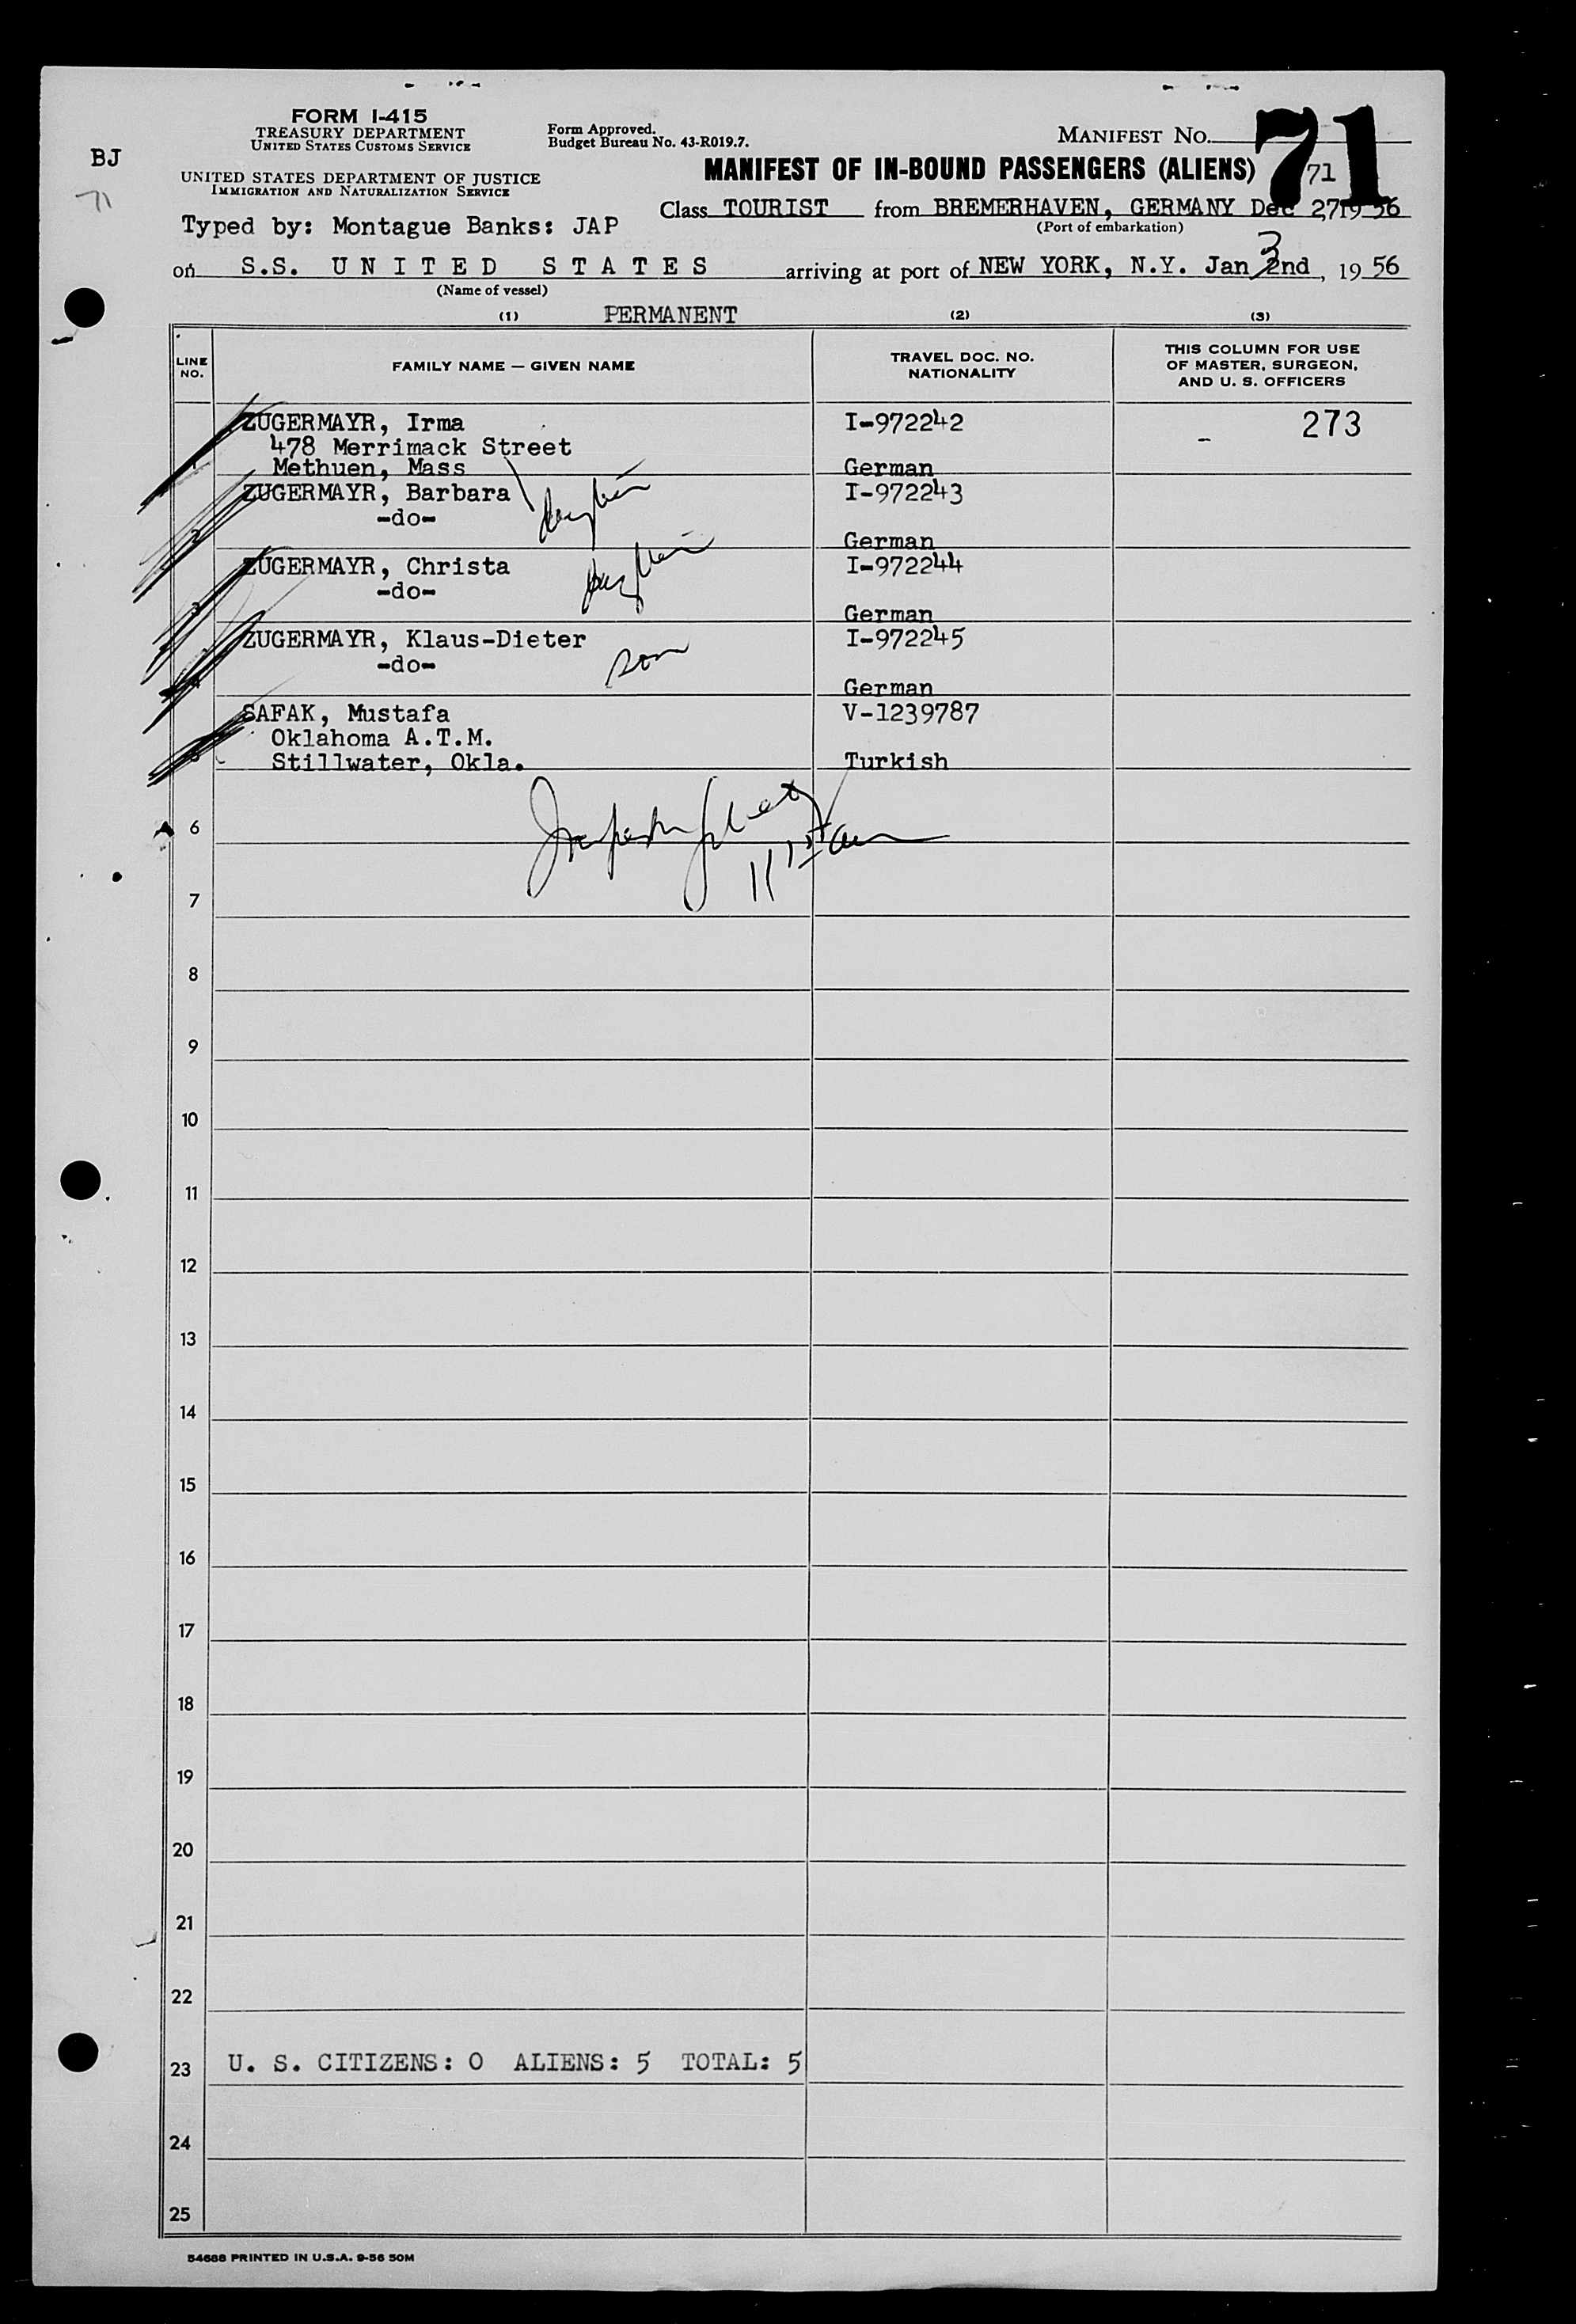 FORM I-415
TREASURY DEPARTMENT
UNITED STATES CUSTOMS SERVICE
Form Approved.
Budget Bureau No. 43-R019.7.
MANIFEST No. 71
BJ
71
UNITED STATES DEPARTMENT OF JUSTICE
IMMIGRATION AND NATURALIZATION SERVICE
MANIFEST OF IN-BOUND PASSENGERS (ALIENS) 71
Typed by: Montague Banks: JAP
Class TOURIST from BREMERHAVEN, GERMANY Dec 27, 19 56
(Port of embarkation)
on S.S. UNITED STATES arriving at port of NEW YORK, N.Y. Jan 2nd 3, 19 56
(Name of vessel)
(1) PERMANENT (2) (3)
LINE NO. FAMILY NAME — GIVEN NAME TRAVEL DOC. NO. NATIONALITY THIS COLUMN FOR USE OF MASTER, SURGEON, AND U. S. OFFICERS
ZUGERMAYR, Irma I-972242 - 273
478 Merrimack Street
1 Methuen, Mass German
ZUGERMAYR, Barbara I-972243
-do- daughter
2 German
ZUGERMAYR, Christa I-972244
-do- daughter
3 German
ZUGERMAYR, Klaus-Dieter I-972245
-do- son
4 German
SAFAK, Mustafa V-1239787
Oklahoma A.T.M.
5 Stillwater, Okla. Turkish
6
7
8
9
10
11
12
13
14
15
16
17
18
19
20
21
22
23 U. S. CITIZENS: 0 ALIENS: 5 TOTAL: 5
24
25
54688 PRINTED IN U.S.A. 9-56 50M